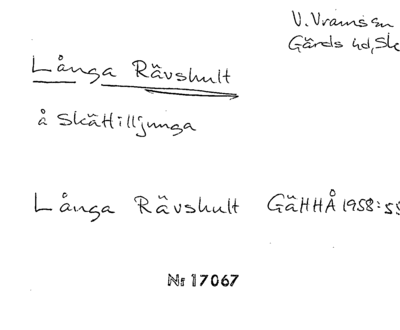 V. Vram sn
Gärds hd, Sk
Långa Rävshult
å Skättilljunga
Långa Rävshult GäHHÅ 1958:55
Nr 17067